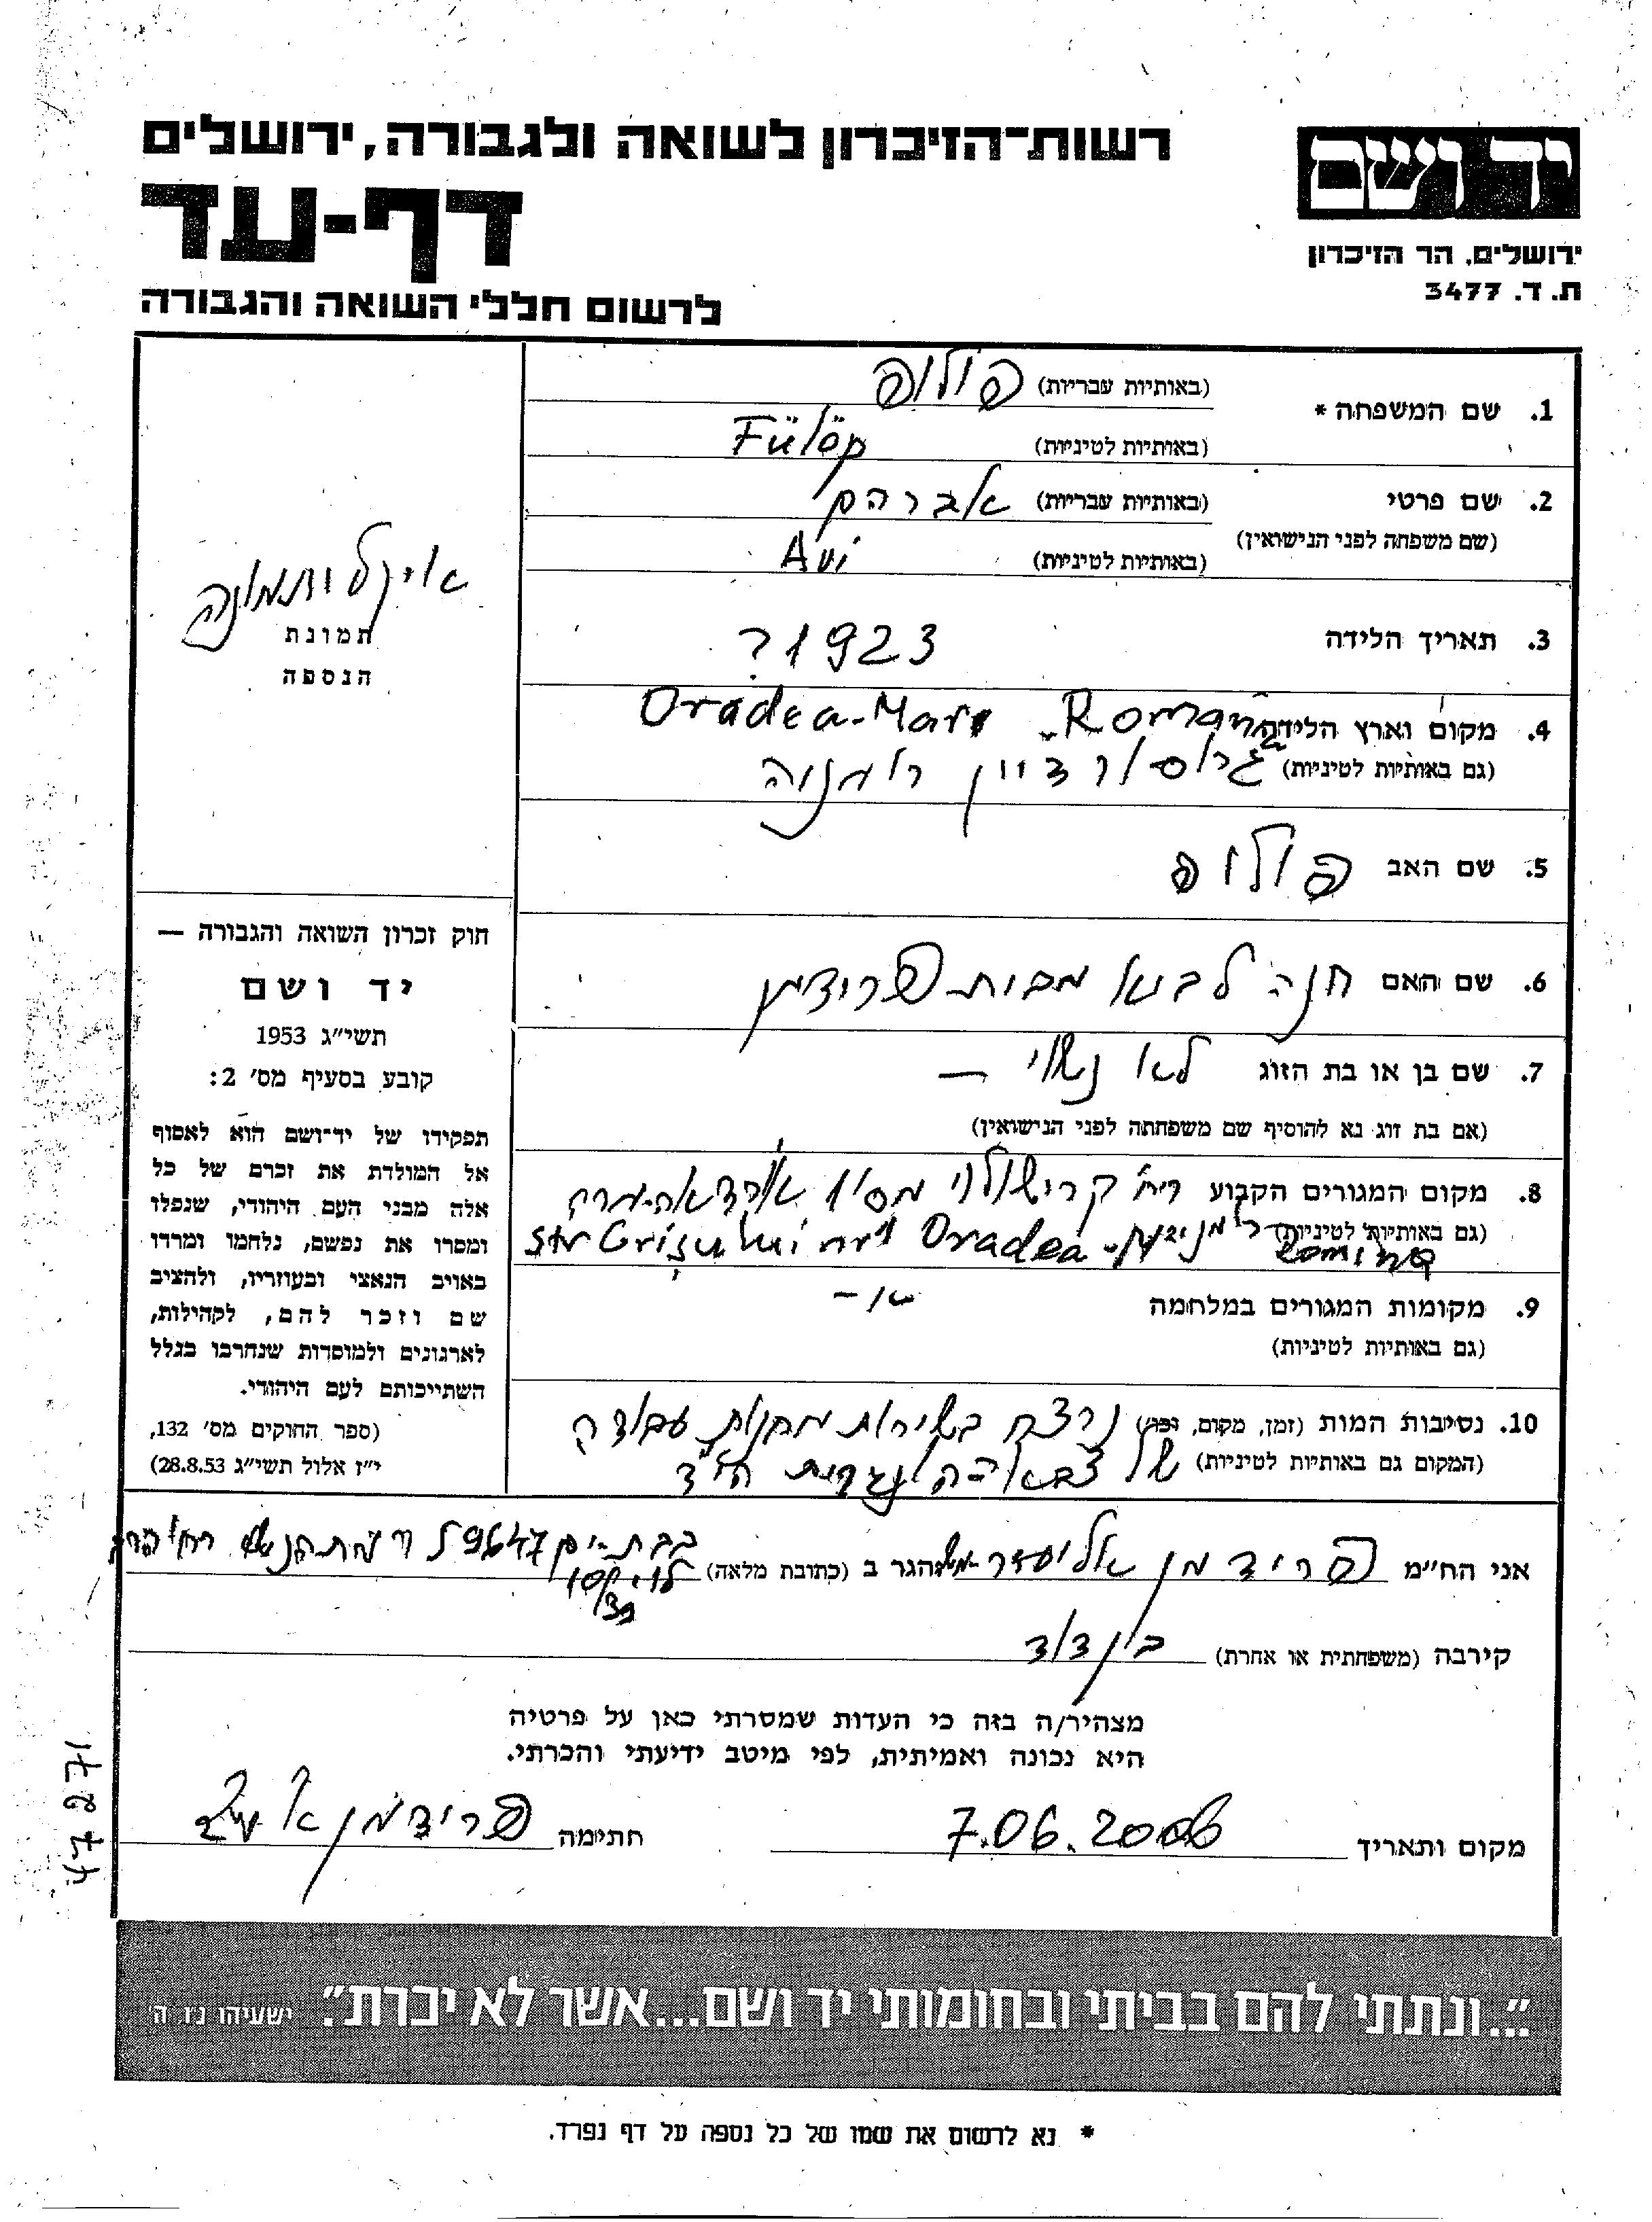 רשות-הזיכרון לשואה ולגבורה, ירושלים
דף-עד
לרשום חללי השואה והגבורה
יד ושם
ירושלים, הר הזיכרון
ת. ד. 3477
1. שם המשפחה * (באותיות עבריות) פולופ
(באותיות לטיניות) Fülöp
2. שם פרטי (באותיות עבריות) אברהם
(שם משפחה לפני הנישואין) (באותיות לטיניות) Avi
3. תאריך הלידה 1923 ?
4. מקום וארץ הלידה Oradea-Mare
(גם באותיות לטיניות)
5. שם האב פולופ
6. שם האם חנה לבוא מבית פרידמן
7. שם בן או בת הזוג לא נשוי —
(אם בת זוג נא להוסיף שם משפחתה לפני הנישואין)
8. מקום המגורים הקבוע
(גם באותיות לטיניות) Oradea
9. מקומות המגורים במלחמה
(גם באותיות לטיניות)
10. נסיבות המות (זמן, מקום, וכו') נרצח בשירות מחנות עבודה
(המקום גם באותיות לטיניות) של צבא ההונגרית הי"ד
תמונת
הנספה
חוק זכרון השואה והגבורה —
יד ושם
תשי"ג 1953
קובע בסעיף מס' 2:
תפקידו של יד-ושם הוא לאסוף
אל המולדת את זכרם של כל
אלה מבני העם היהודי, שנפלו
ומסרו את נפשם, נלחמו ומרדו
באויב הנאצי ובעוזריו, ולהציב
שם וזכר להם, לקהילות,
לארגונים ולמוסדות שנחרבו בגלל
השתייכותם לעם היהודי.
(ספר החוקים מס' 132,
י"ז אלול תשי"ג 28.8.53)
אני הח"מ פרידמן אליעזר הגר ב (כתובת מלאה) בבת-ים
קירבה (משפחתית או אחרת) בן דוד
מצהיר/ה בזה כי העדות שמסרתי כאן על פרטיה
היא נכונה ואמיתית, לפי מיטב ידיעתי והכרתי.
מקום ותאריך 7.06.2006 חתימה פרידמן
"...ונתתי להם בביתי ובחומותי יד ושם...אשר לא יכרת". ישעיהו נ"ו, ה'
* נא לרשום את שמו של כל נספה על דף נפרד.